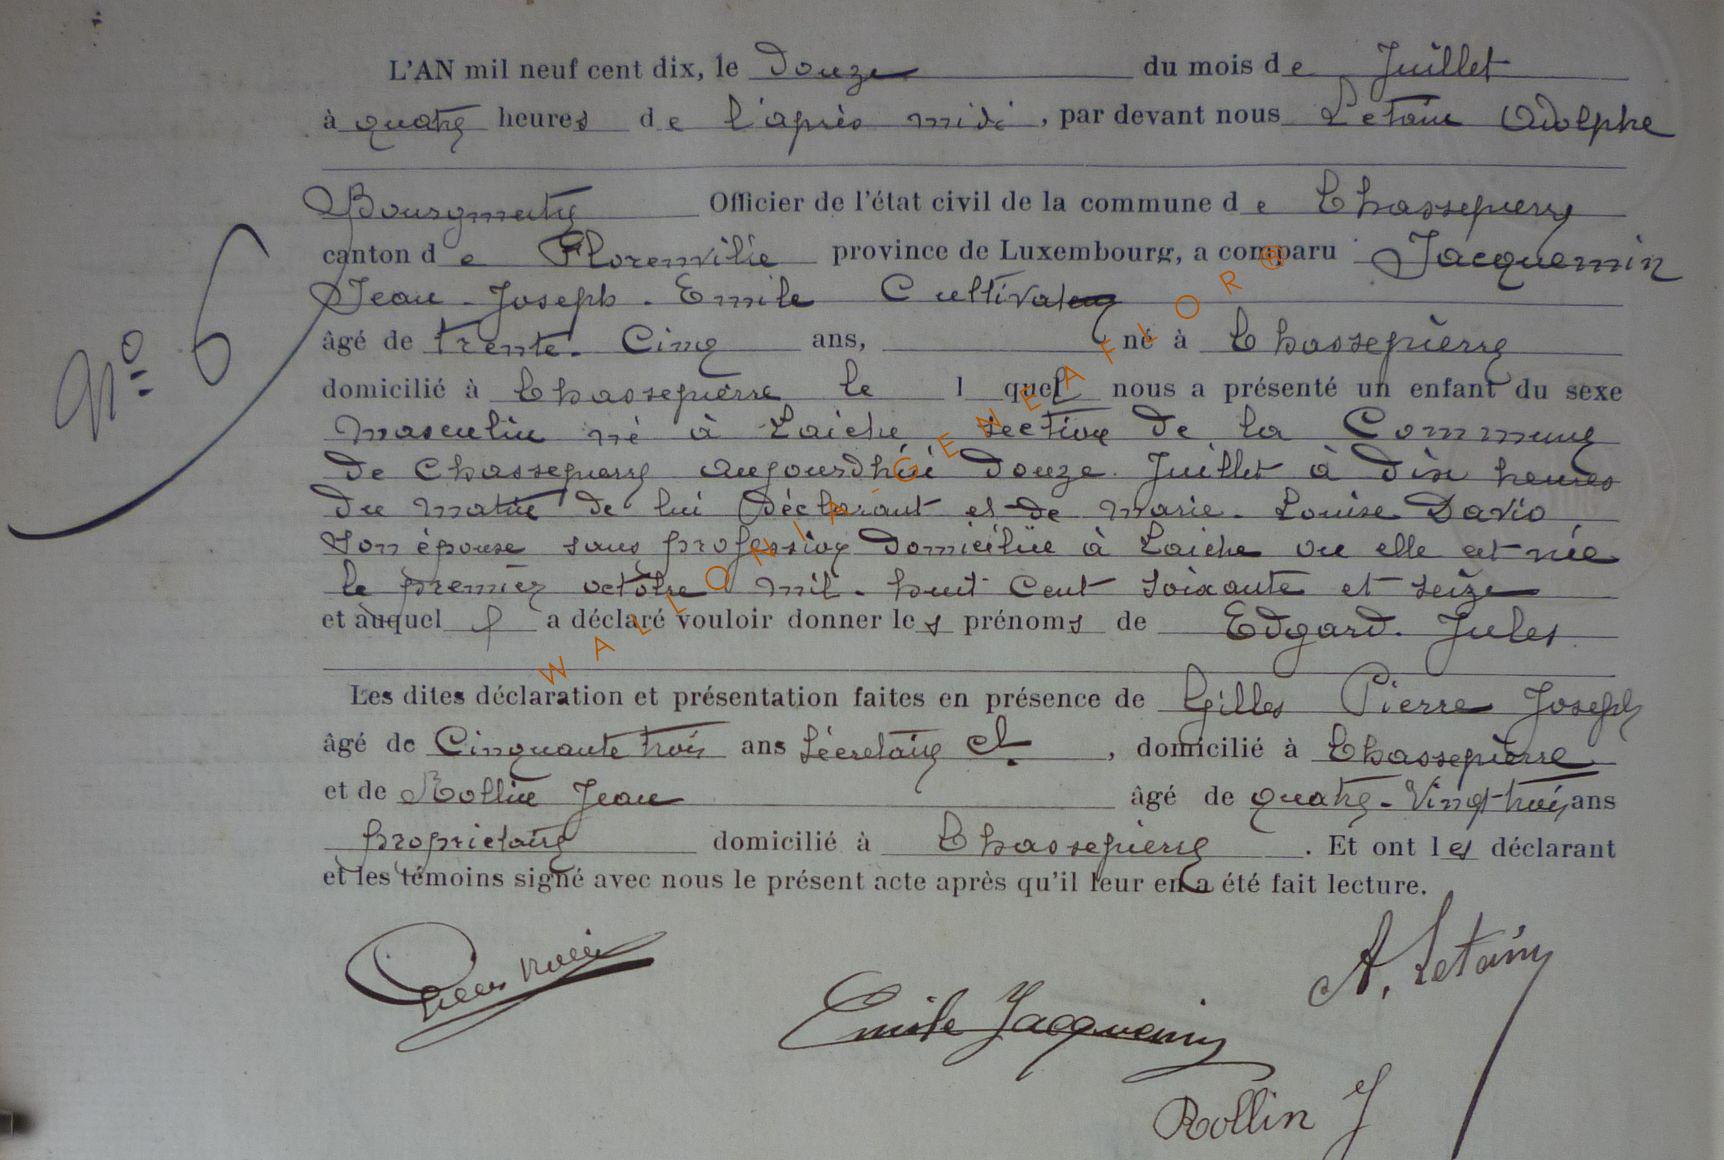 L'AN mil neuf cent dix, le douze du mois de Juillet
à quatre heures de l'après midi, par devant nous Letain Adolphe
Bourgmestre Officier de l'état civil de la commune de Chassepierre
canton de Florenville province de Luxembourg, a comparu Jacquemin
Jean-Joseph-Emile Cultivateur
âgé de trente-Cinq ans, né à Chassepierre
domicilié à Chassepierre le l quel nous a présenté un enfant du sexe
Masculin né à Laiche section de la Commune
de Chassepierre aujourd'hui douze Juillet à dix heures
du matin de lui déclarant et de Marie-Louise David
son épouse sans profession domiciliée à Laiche ou elle est née
le premier octobre mil-huit cent soixante et seize
et auquel il a déclaré vouloir donner les prénoms de Edgard-Jules
Les dites déclaration et présentation faites en présence de Gilles Pierre Joseph
âgé de Cinquante trois ans Sécretaire Cl., domicilié à Chassepierre
et de Rollin Jean âgé de quatre-Vingt-trois ans
propriétaire domicilié à Chassepierre. Et ont les déclarant
et les témoins signé avec nous le présent acte après qu'il leur en a été fait lecture.
N° 6
A. Letain
Emile Jacquemin
Rollin J
WALLONIA-GENEAFLOR®